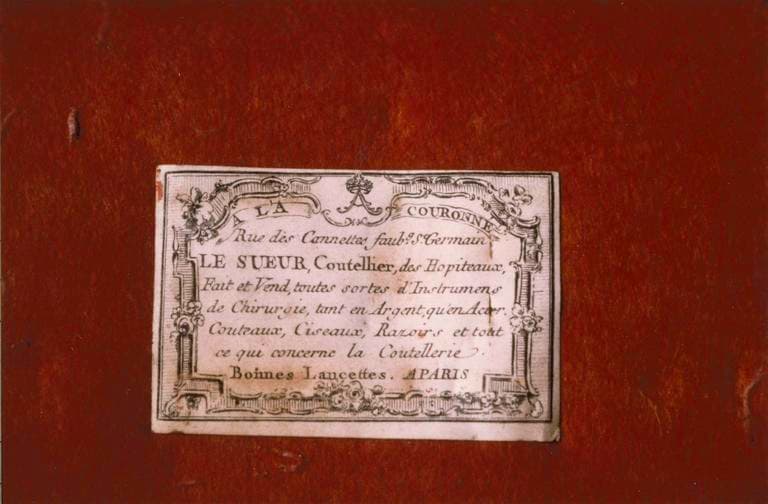 A LA A COURONNE
Rue des Cannettes, faubg. St. Germain
LE SUEUR, Coutellier, des Hopiteaux,
Fait et Vend, toutes sortes d'Instrumens
de Chirurgie, tant en Argent, qu'en Acier.
Couteaux, Ciseaux, Razoirs et tout
ce qui concerne la Coutellerie.
Bonnes Lancettes. A PARIS